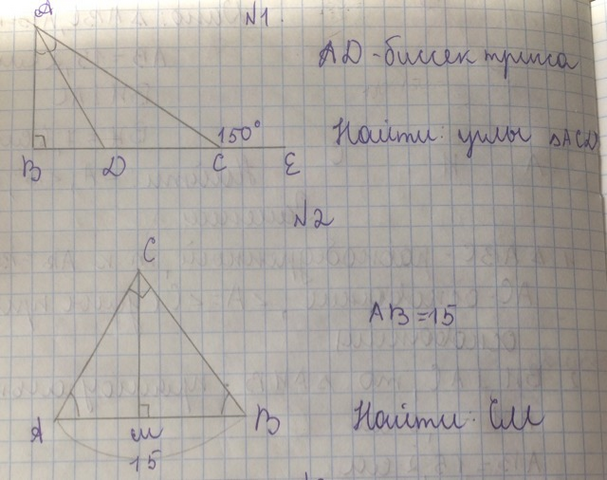 N1
A
AD - биссектриса
150°
B D C E
Найти: углы ΔACD
N2
C
AB=15
A M B
15
Найти: CM